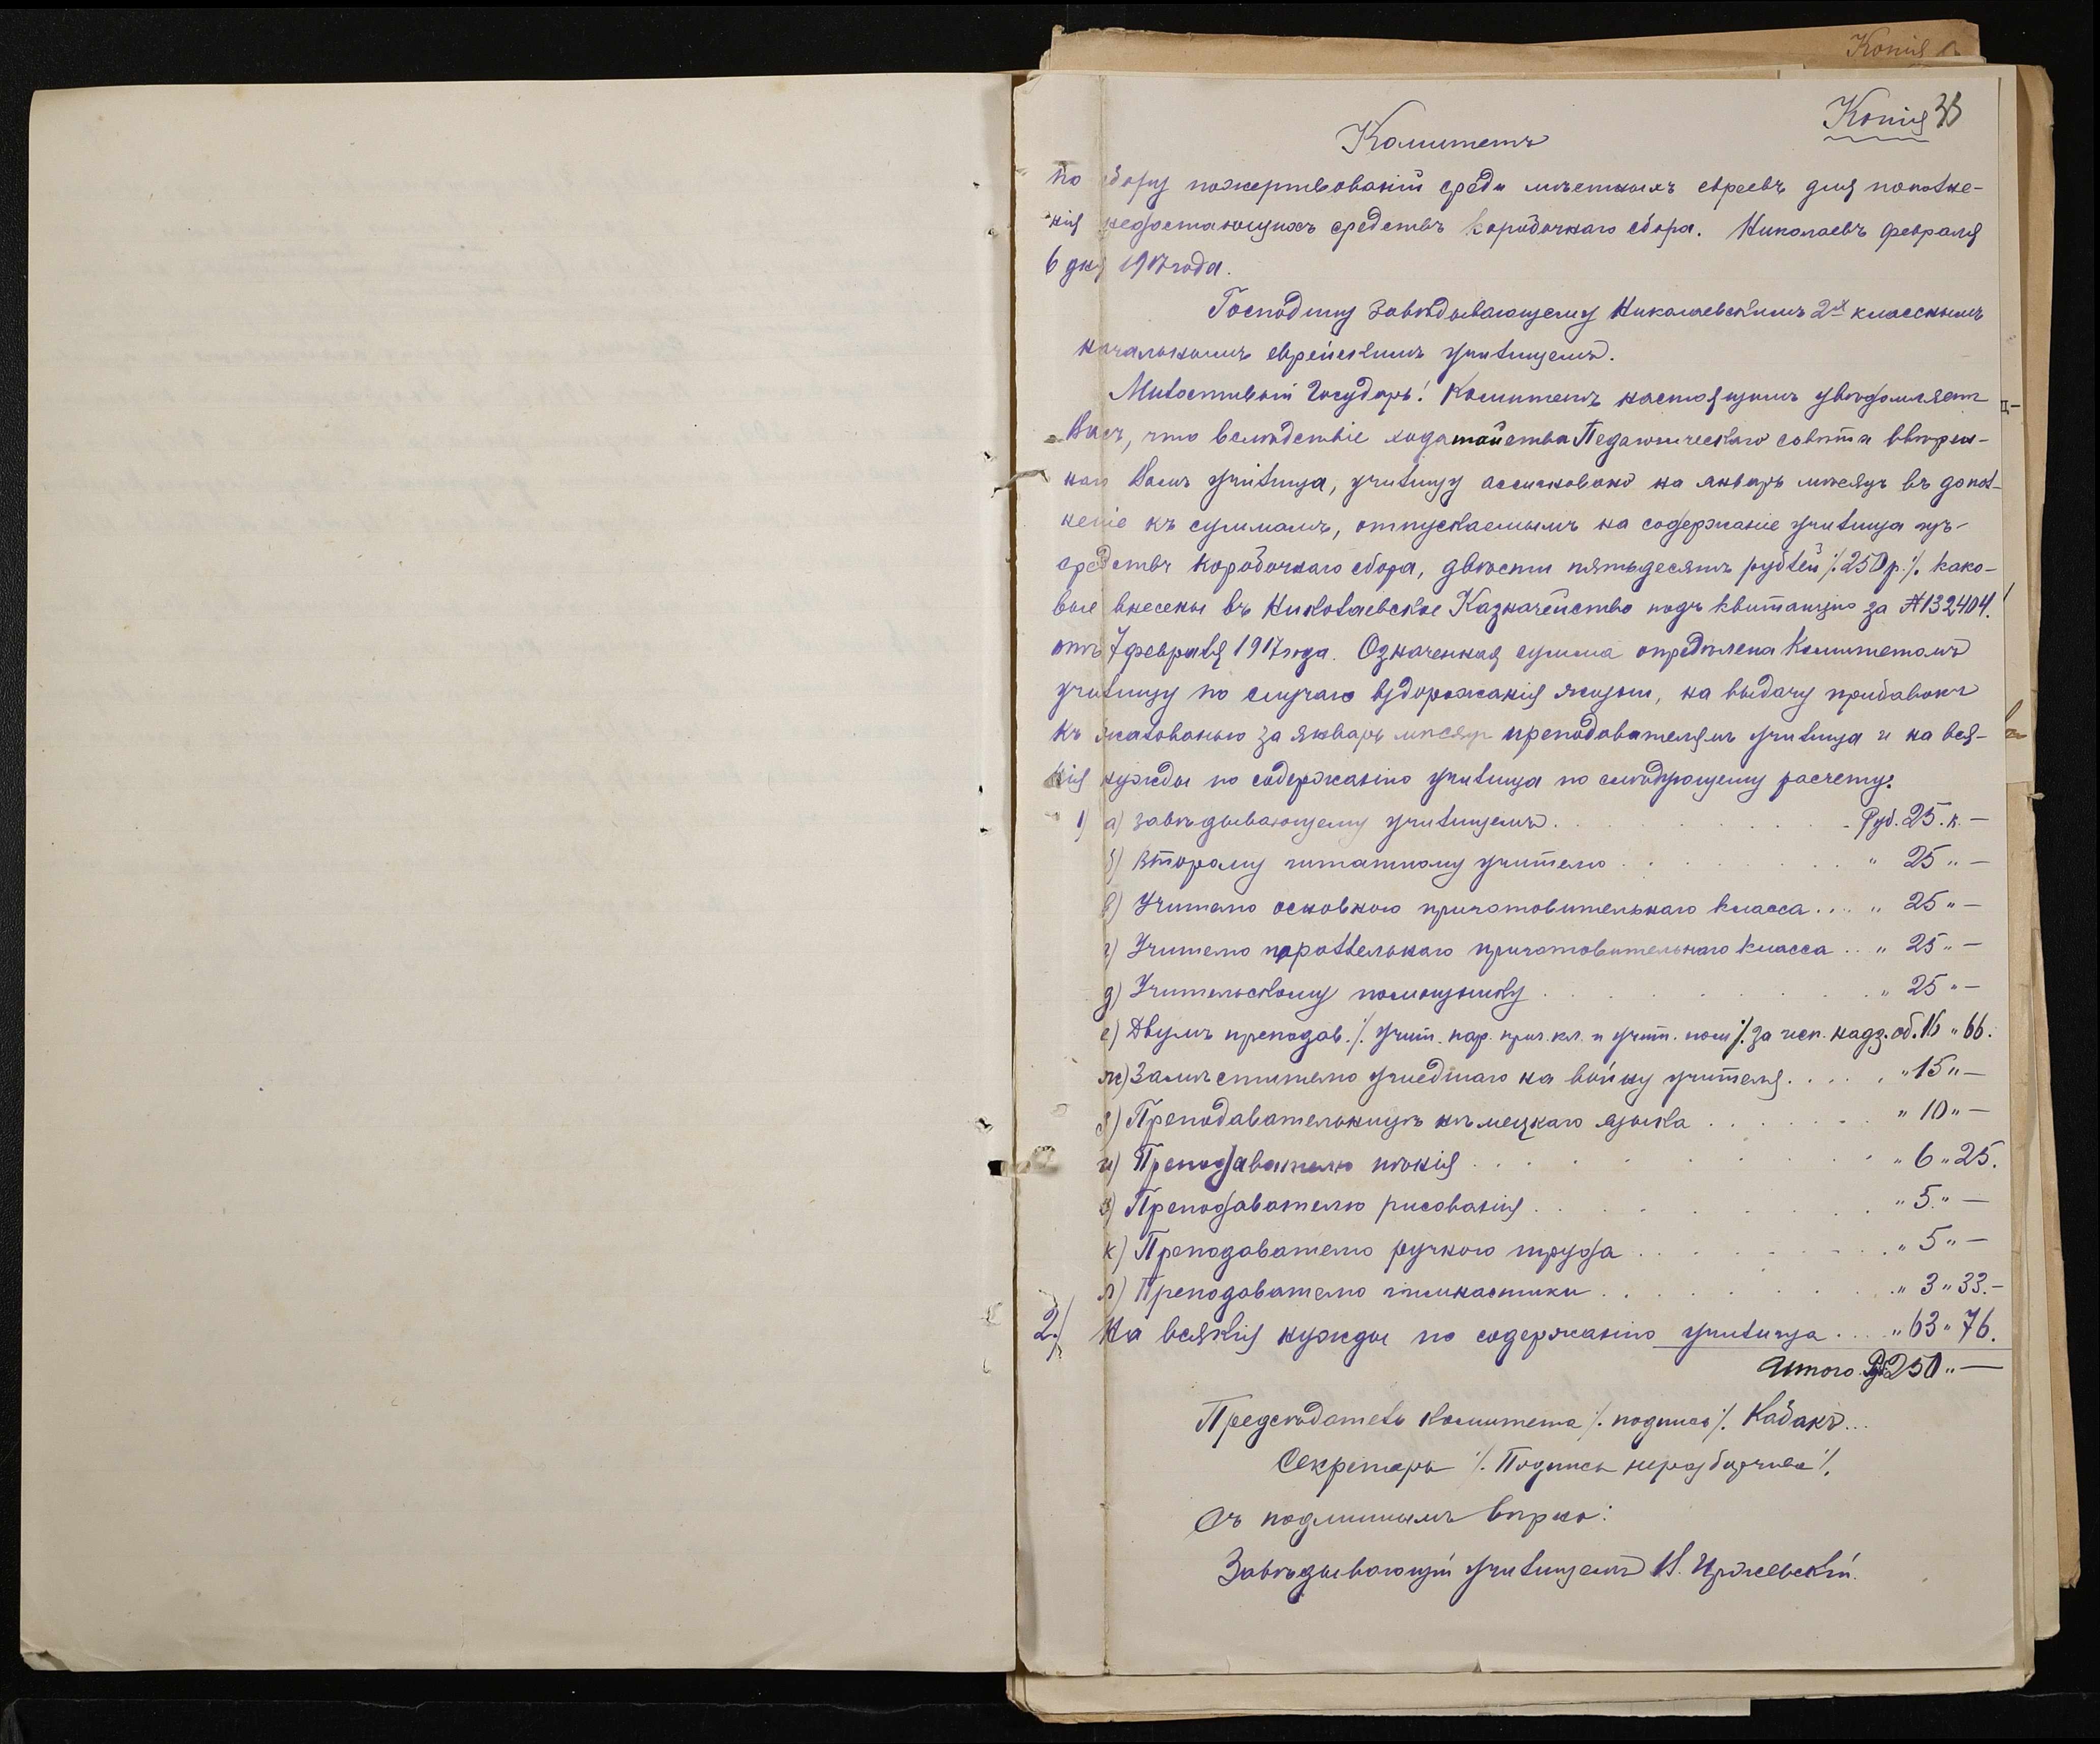 Копія
Копія 33
Комитетъ
по сбору пожертвованій среди мѣстныхъ евреевъ для пополне-
нія недостающихъ средствъ коробочнаго сбора. Николаевъ февраля
6 дня 1917 года.
Господину Завѣдывающему Николаевскимъ 2х класснымъ
начальнымъ еврейскимъ училищемъ.
Милостивый Государь! Комитетъ настоящимъ увѣдомляетъ
Васъ, что вслѣдствіе ходатайства Педагогическаго совѣта ввѣрен-
наго Вамъ училища, училищу ассигновано на январь мѣсяцъ въ допол-
неніе къ суммамъ, отпускаемымъ на содержаніе училища изъ
средствъ коробочнаго сбора, двѣсти пятьдесятъ рублей /.250 р./. како-
вые внесены въ Николаевское Казначейство подъ квитанцію за №132404.
отъ 7 февраля 1917 года. Означенная сумма опредѣлена Комитетомъ
училищу по случаю вздорожанія жизни, на выдачу прибавокъ
къ жалованью за январь мѣсяцъ преподавателямъ училища и на вся-
кія нужды по содержанію училища по слѣдующему расчету.
1) а) завѣдывающему училищемъ. Руб. 25. к. —
б) Второму штатному учителю " 25 " —
в) Учителю основного приготовительнаго класса . . . " 25 " —
г) Учителю параллельнаго приготовительнаго класса . . " 25 " —
д) Учительскому помощнику " 25 " —
е) Двумъ преподав. /. учит. пар. приг. кл. и учит. пом /. за исп. надз. об. 16 " 66.
ж) Замѣстителю ушедшаго на войну учителя . . . . " 15 " —
з) Преподавательницѣ нѣмецкаго языка . . . . . . " 10 " —
и) Преподавателю пѣнія " 6 " 25.
і) Преподавателю рисованія " 5 " —
к) Преподавателю ручного труда " 5 " —
л) Преподавателю гимнастики " 3 " 33. —
2) На всякія нужды по содержанію училища . . . . " 63 " 76.
Итого Руб 250 " —
Предсѣдатель Комитета /. подпись /. Кабакъ...
Секретарь /. Подпись неразборчива /.
Съ подлиннымъ вѣрно:
Завѣдывающій училищемъ